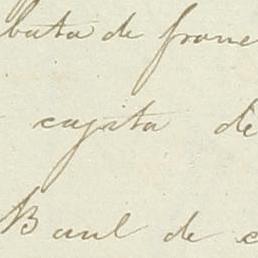 bata de frane
cajita de
Baul de c